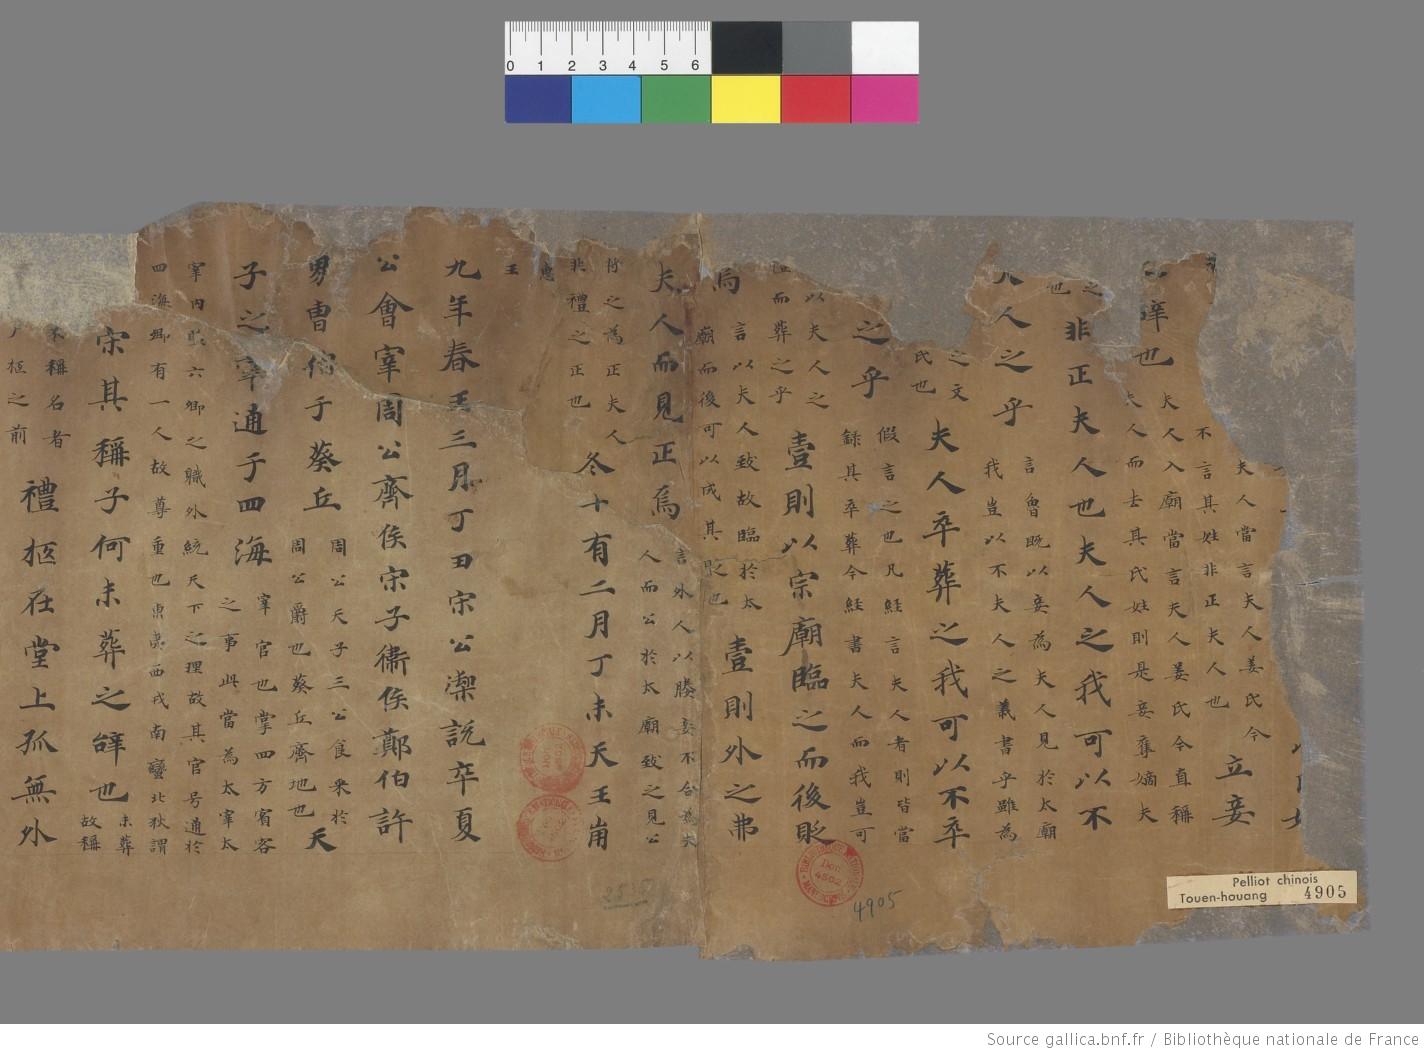 夫人當言夫人姜氏今
不言其姓非正夫人也
立妾
辭也
夫人入廟當言夫人姜氏今直稱
夫人而去其氏姓則是妾奪嫡夫
之
也
非正夫人也夫人之我可以不
夫人之乎
言魯既以妾為夫人見於太廟
我豈以不夫人之義書乎雖為
之文
氏也
夫人卒葬之我可以不卒
之乎
假言之也凡経言夫人者則皆當
錄其卒葬今経書夫人而我豈可
以夫人之
而葬之乎
壹則以宗廟臨之而後貶
焉
言以夫人致故臨於太
廟而後可以成其貶也
壹則外之弗
夫人而見正焉
言外人以媵妾不合為夫
人而公於太廟致之見公
之為正夫人
非禮之正也
冬十有二月丁未天王崩
惠
王
九年春王三月丁丑宋公禦說卒夏
公會宰周公齊侯宋子衛侯鄭伯許
男曹伯于葵丘
周公天子三公食采於
周公爵也葵丘齊地也
天
子之宰通于四海
宰官也掌四方賓客
之事此當為太宰太
宰內聆六卿之職外統天下之理故其官号通於
四海卿有一人故尊重也東夷西戎南蠻北狄謂
宋其稱子何未葬之辭也
未葬
故稱
不稱名者
柩之前
禮柩在堂上孤無外
0 1 2 3 4 5 6
Pelliot chinois
Touen-houang 4905
4905
Source gallica.bnf.fr / Bibliothèque nationale de France